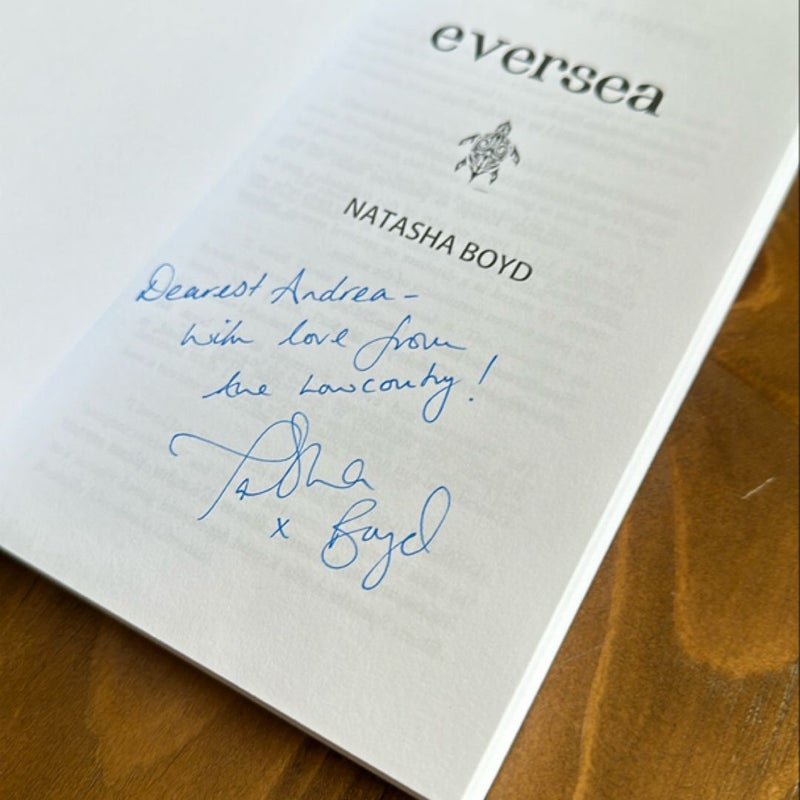 eversea
NATASHA BOYD
Dearest Andrea –
with love from
the Lowcountry!
Tasha
x Boyd